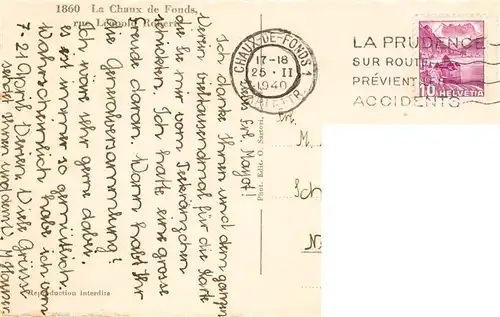 1860 La Chaux de Fonds,
rue Léopold Robert
CHAUX-DE-FONDS 1
17-18
25 · II
1940
LA PRUDENCE
SUR ROUTE
PRÉVIENT LES
ACCIDENTS
10 HELVETIA
Liebes Frl. Mayot!
Ich danke Ihnen und dem ganzen
Verein vieltausendmal für die Karte
die Sie mir vom Teekränzchen
schickten. Ich hatte eine grosse
Freude daran. Wann habt Ihr
die Generalversammlung?
Ich wäre sehr gerne dabei.
es ist immer so gemütlich.
Wahrscheinlich habe ich vom
7-21 April Ferien. Viele Grüsse
sendet Ihnen und dem V. M
Frl.
M
Phot. Edit. O. Sartori,
Reproduction interdite